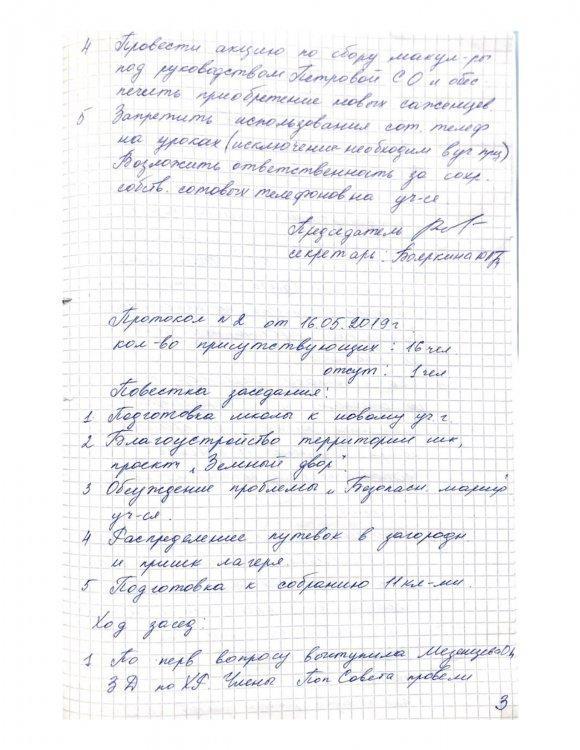 4 Провести акцию по сбору макул-ры
под руководством Петровой СО и обес
печить приобретение новых саженцев.
5 Запретить использования сот. телеф
на уроках (исключение необходим в уч прц)
Возложить ответственность за сохр.
собств. сотовых телефонов на уч-ся.
Председатель
секретарь: Бояркина
Протокол №2 от 16.05.2019г.
кол-во присутствующих: 16 чел.
отсут: 1 чел
Повестка заседания:
1 Подготовка школы к новому уч г.
2 Благоустройство территории шк,
проект „Земный двор".
3 Обсуждение проблемы „Безопасн. маршр"
уч-ся.
4 Распределение путевок в загородн
и пришк лагеря.
5 Подготовка к собранию 11 кл-ми.
Ход засед:
1 По перв вопросу выступила Мезенцева
ЗД по ХР. Члены Поп Совета провели
3